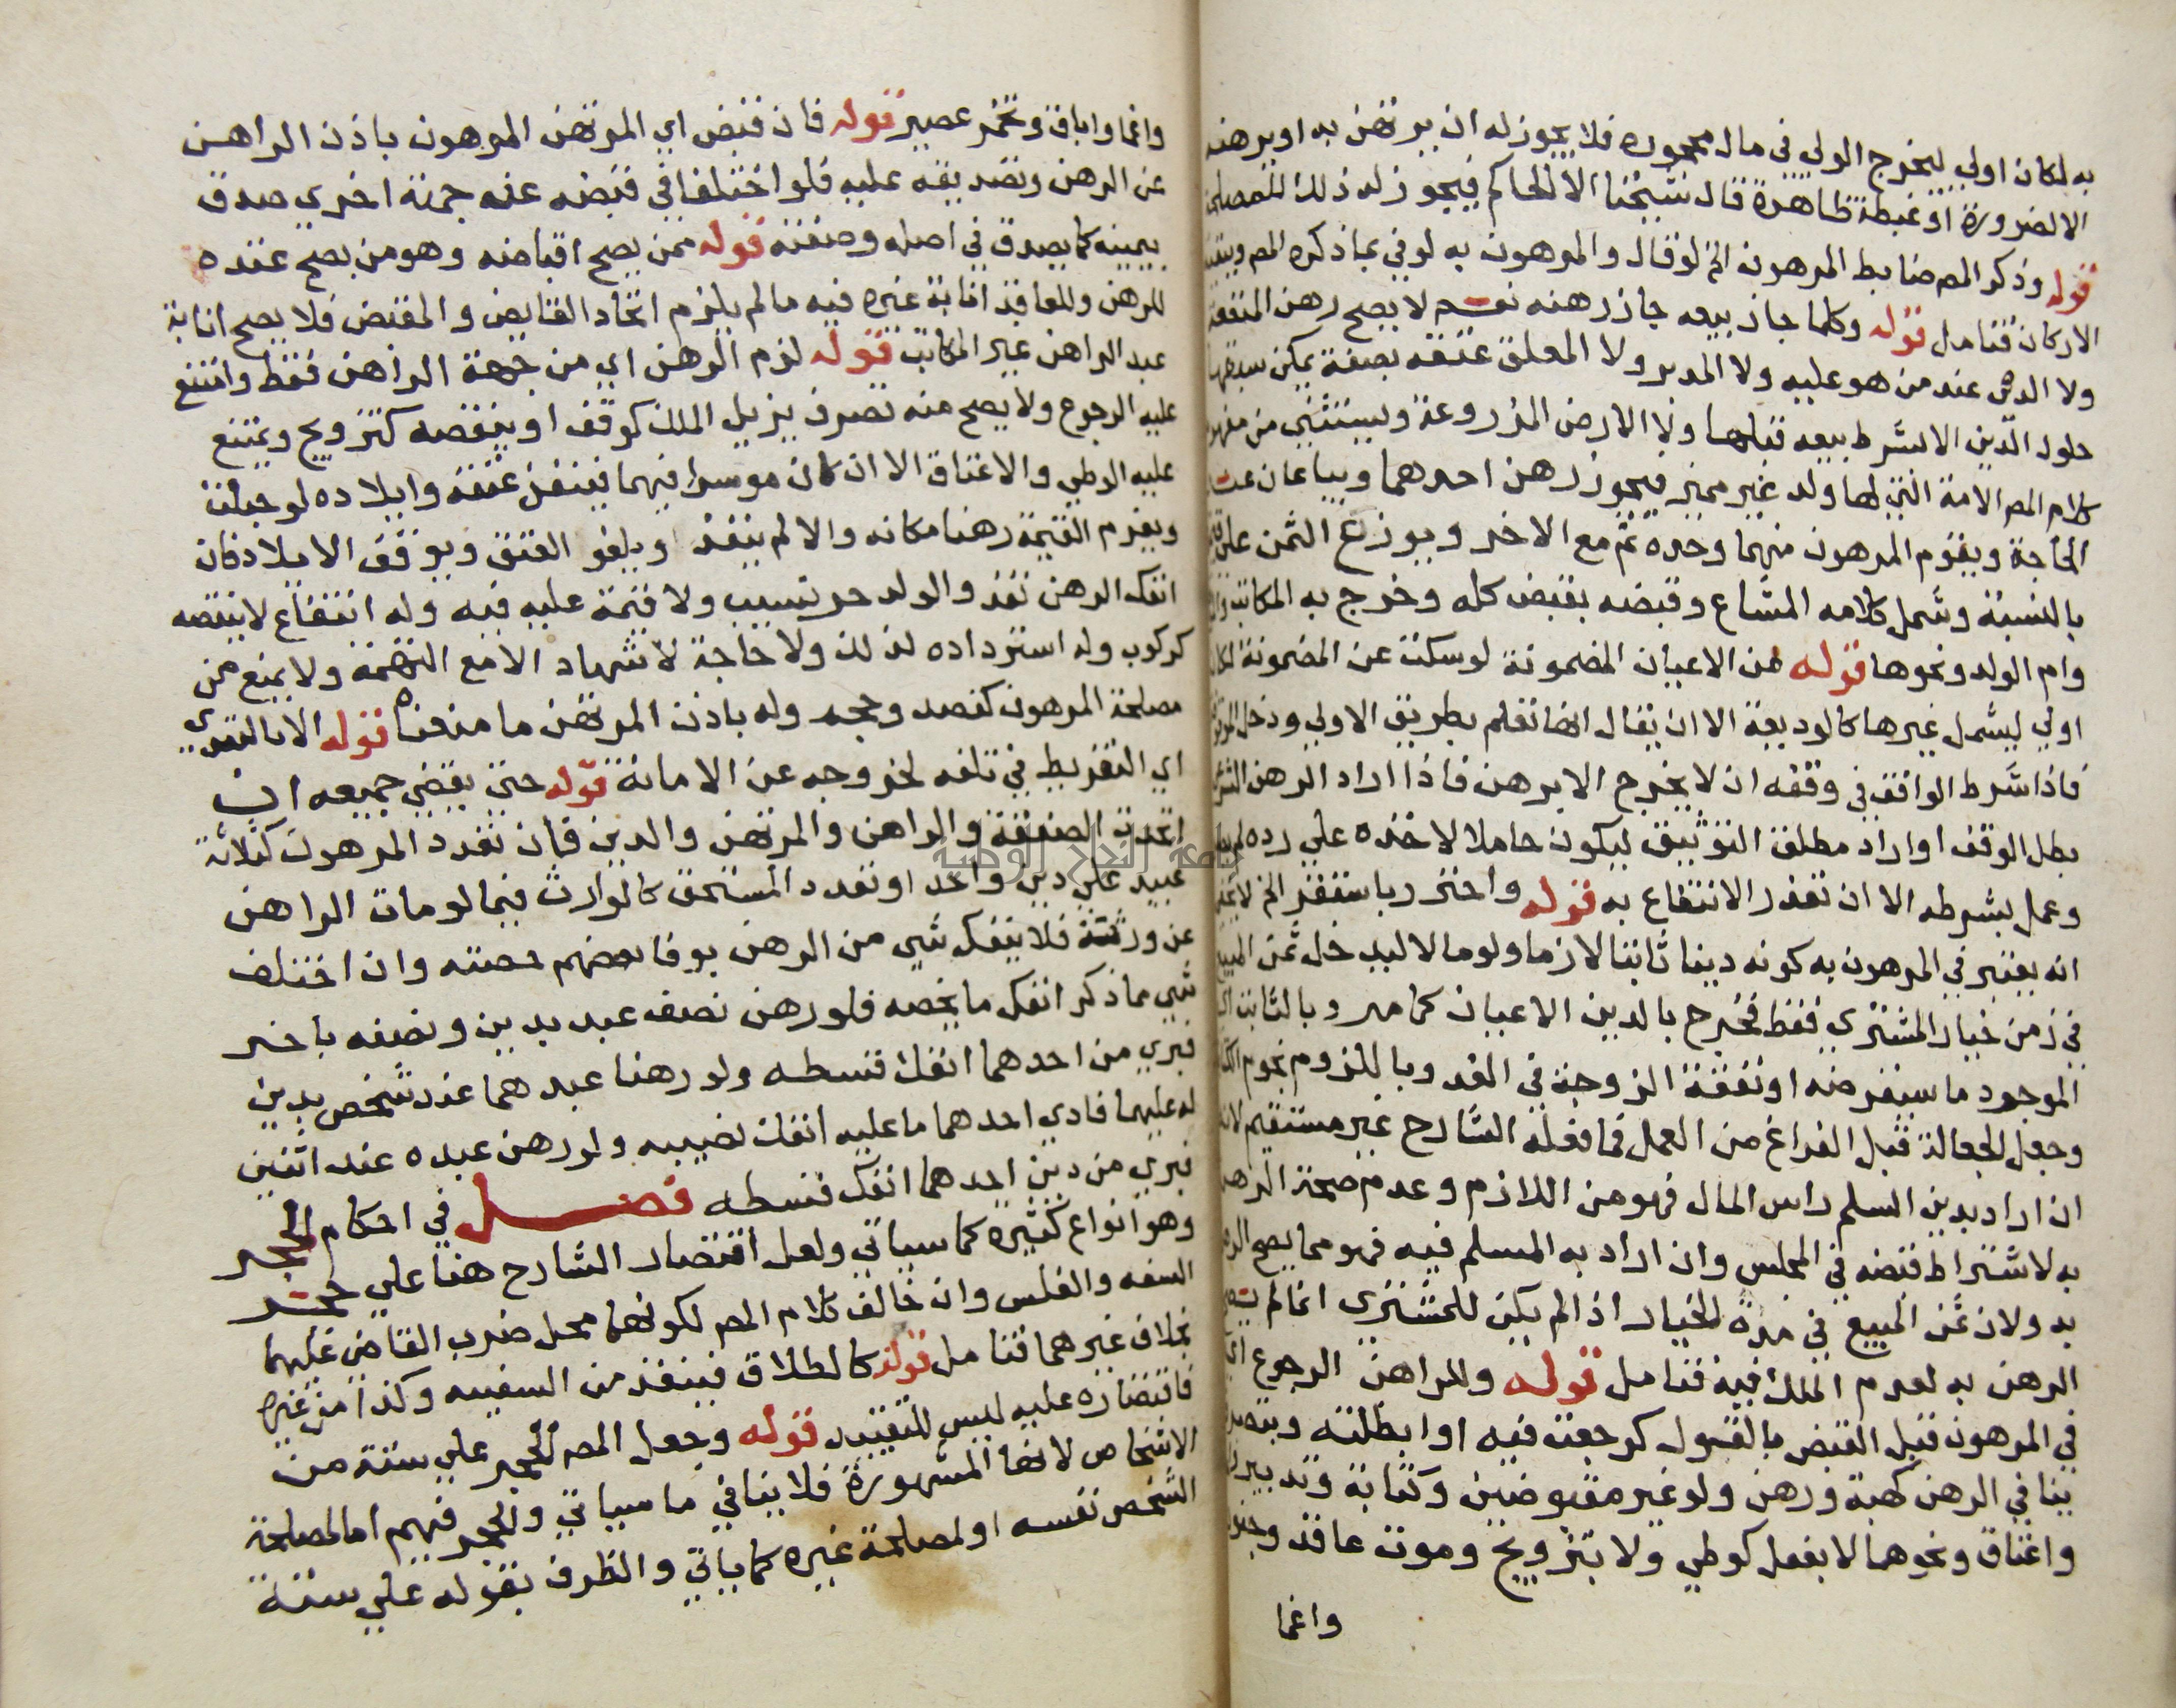 به لكان اولي ليخرج الولي في مال محجوره فلا يجوز له ان يرتهن به او يرهنه
الا لضرورة او غبطة ظاهرة قال شيخنا الا الحاكم فيجوز له ذلك للمصلحة
قوله وذكر المص ضابط المرهون الخ لو قال والمرهون به لوفي بما ذكره المص وببقية
الاركان فتامل قوله وكلما جاز بيعه جاز رهنه نعم لا يصح رهن المنفعة
ولا الدين عند من هو عليه ولا المدبر ولا المعلق عتقه بصفة يمكن سبقها
حلول الدين الا بشرط بيعه قبلها ولا الارض المزروعة ويستثني من مفهوم
كلام المص الامة التي لها ولد غير مميز فيجوز رهن احدهما ويباعان عند
الحاجة ويقوم المرهون منهما وحده ثم مع الاخر ويوزع الثمن عليهما
بالنسبة وشمل كلامه المشاع وقبضه بقبض كله وخرج به المكاتب
وام الولد ونحوها قوله من الاعيان المضمونة لو سكت عن المضمونة لكان
اولي ليشمل غيرها كالوديعة الا ان يقال انها تعلم بطريق الاولي ودخل
فاذا شرط الواقف في وقفه ان لا يخرج الا برهن فاذا اراد الرهن
بطل الوقف او اراد مطلق التوثيق ليكون حاملا لاخذه علي رده
وعمل بشرطه الا ان تعذر الانتفاع به قوله واحترز باستقر الخ
انه يعتبر في المرهون به كونه دينا ثابتا لازما ولو مالا ليدخل ثمن المبيع
في زمن خيار المشتري فقط فخرج بالدين الاعيان كما مر وبالثابت
الموجود ما سيقرضه او نفقة الزوجة في الغد وباللزوم نجوم
وجعل الجعالة قبل الفراغ من العمل فما فعله الشارح غير مستقيم لانه
ان اراد بدين السلم راس المال فهو من اللازم وعدم صحة الرهن
به لاشتراط قبضه في المجلس وان اراد به المسلم فيه فهو مما يصح
به ولان ثمن المبيع في مدة الخيار اذا لم يكن للمشتري انما لم يصح
الرهن به لعدم الملك فيه فتامل قوله وللراهن الرجوع اي
في المرهون قبل القبض بالقول كرجعت فيه او ابطلته وبتصرف
ينافي الرهن كهبة ورهن ولو غير مقبوضين وكتابة وتدبير
واعتاق ونحوهما لا بفعل كوطي ولا بتزويج وموت عاقد وجنون
واغما
واغما واباق وتخمر عصير قوله فان قبض اي المرتهن المرهون باذن الراهن
عن الرهن وتصديقه عليه فلو اختلفا في قبضه عنه جهة اخري صدق
بيمينه كما يصدق في اصله وصفته قوله ممن يصح اقباضه وهو من يصح عقده
للرهن وللعاقد انابة غيره فيه ما لم يلزم اتحاد القابض والمقبض فلا يصح انابة
عبد الراهن غير المكاتب قوله لزم الرهن اي من جهة الراهن فقط وامتنع
عليه الرجوع ولا يصح منه تصرف يزيل الملك كوقف او ينقصه كتزويج ويمتنع
عليه الوطي والاعتاق الا ان كان موسرا فيهما فينفذ عتقه وايلاده لو حبلت
ويغرم القيمة رهنا مكانه والا لم ينفذ ويلغو العتق ويوقف الايلاد فان
انفك الرهن نفذ والولد حر نسيب ولا قيمة عليه فيه وله انتفاع لا ينقصه
كركوب وله استرداده لذلك ولا حاجة لاشهاد الا مع التهمة ولا يمنع من
مصلحة المرهون كفصد وحجم وله باذن المرتهن ما منعناه قوله الا بالتعدي
اي التفريط في تلفه لخروجه عن الامانة قوله حتي يقضي جميعه ان
اتحدت الصفقة والراهن والمرتهن والدين فان تعدد المرهون كثلاثة
عبيد علي دين واحد او تعدد المستحق كالوارث فيما لو مات الراهن
عن ورثته فلا ينفك شي من الرهن بوفا بعضهم حصته وان اختلف
شي مما ذكر انفك ما يخصه فلو رهن نصف عبد بدين ونصفه باخر
فبري من احدهما انفك قسطه ولو رهنا عبدهما عند شخص بدين
له عليهما فادي احدهما ما عليه انفك نصيبه ولو رهن عبده عند اثنين
فبري من دين احدهما انفك قسطه فصل في احكام الحجر
وهو انواع كثيرة كما سياتي ولعل اقتصار الشارح هنا علي حجر
السفه والفلس وان خالف كلام المص لكونهما محل ضرب القاضي عليهما
بخلاف غيرهما فتامل قوله كالطلاق فينفذ من السفيه وكذا من غيره
فاقتصاره عليه ليس للتقييد قوله وجعل المص الحجر علي ستة من
الاشخاص لانها المشهورة فلا ينافي ما سياتي والحجر فيهم اما لمصلحة
الشخص نفسه او لمصلحة غيره كما ياتي والظرف بقوله علي ستة
جامعة النجاح الوطنية